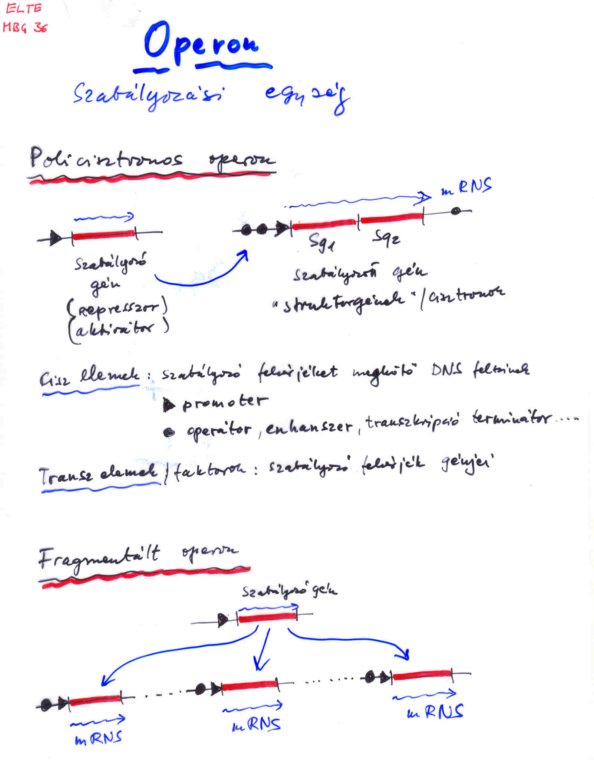 ELTE
MBG 36
Operon
Szabályozási egység
Policisztronos operon
mRNS
Sg1 Sg2
Szabályozó
gén
(represszor)
(aktivátor)
szabályozott gén
"struktúrgének"/cisztronok
Cisz elemek: szabályozó fehérjéket megkötő DNS
promoter
operátor, enhanszer, transzkripció terminátor....
Transz elemek/faktorok: szabályozó fehérjék génjei
Fragmentált operon
Szabályozó gén
mRNS mRNS mRNS